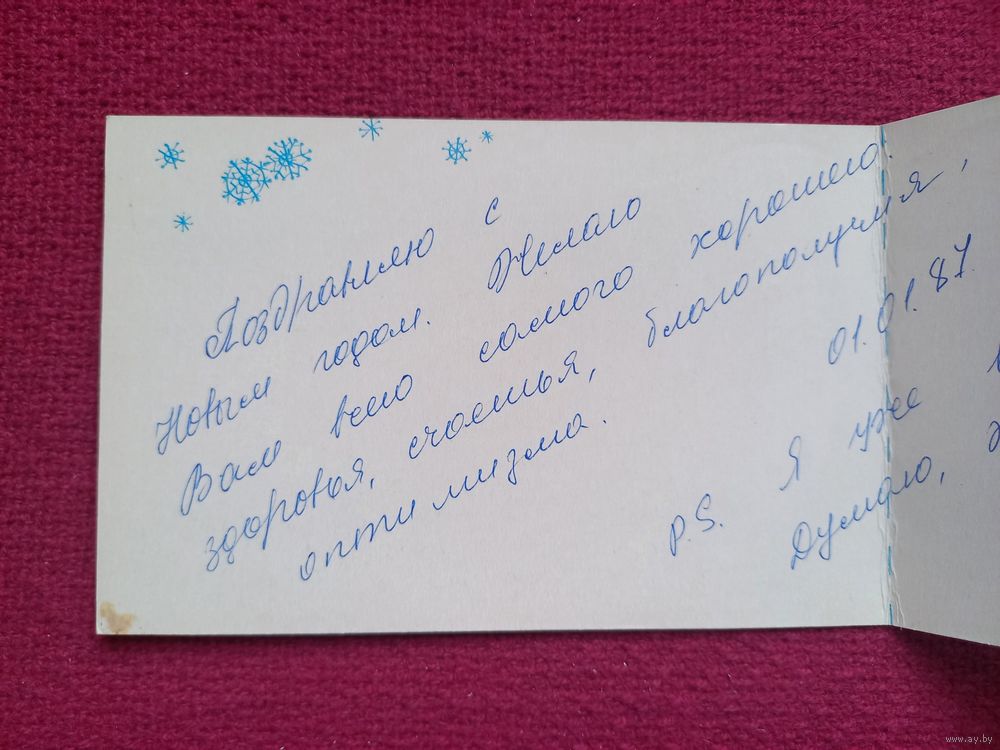 Поздравляю с
Новым годом. Желаю
Вам всего самого хорошего:
здоровья, счастья, благополучия,
оптимизма.
01.01.87.
P.S. Я уже
Думаю,
www.ay.by